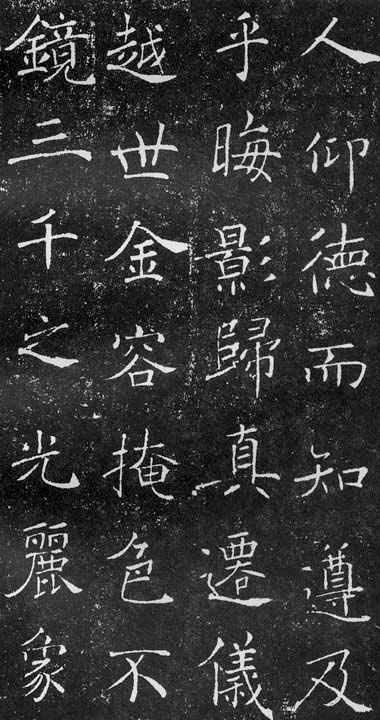 人仰德而知遵及
乎晦影歸真遷儀
越世金容掩色不
鏡三千之光麗象